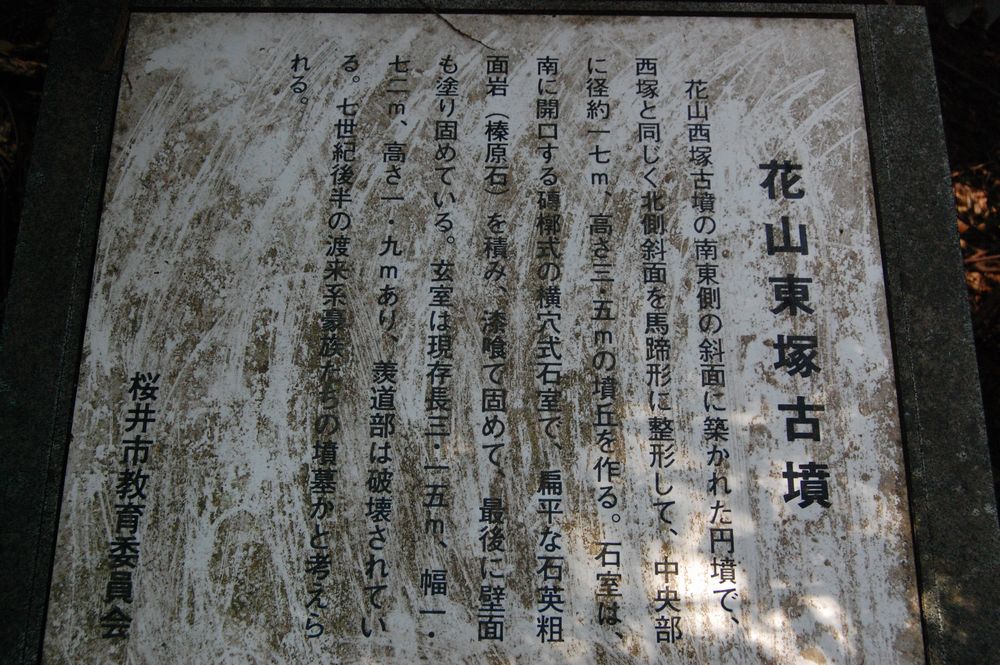 花山東塚古墳
花山西塚古墳の南東側の斜面に築かれた円墳で、
西塚と同じく北側斜面を馬蹄形に整形して、中央部
に径約一七m、高さ三・五mの墳丘を作る。石室は、
南に開口する磚槨式の横穴式石室で、扁平な石英粗
面岩（榛原石）を積み、漆喰で固めて、最後に壁面
も塗り固めている。玄室は現存長三・一五m、幅一・
七二m、高さ一・九mあり、羨道部は破壊されてい
る。七世紀後半の渡来系豪族たちの墳墓かと考えら
れる。
桜井市教育委員会